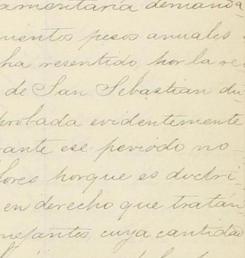 amentaria demanda
mientos pesos anuales
ha resentido por la re
de San Sebastian du
probada evidentemente
rante ese periodo no
lores porque es doctri
en derecho que tratan
nefantes, cuya cantidad